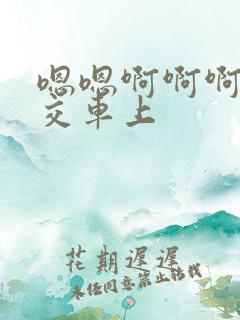 嗯嗯啊啊啊
交车上
花期迟迟
未经同意禁止转载